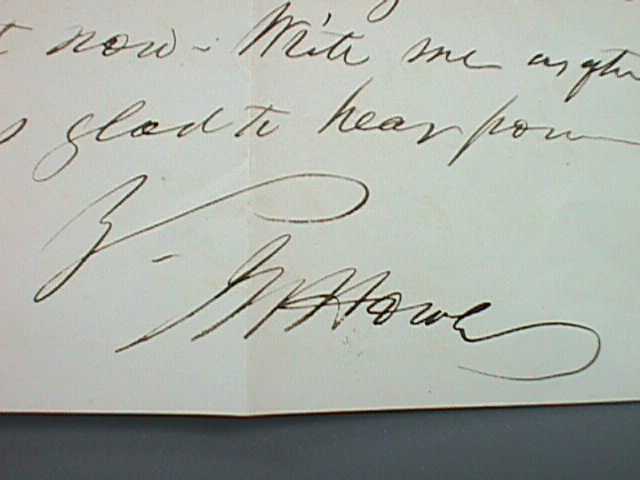 now - Write me
glad to hear from
Y -
Howe